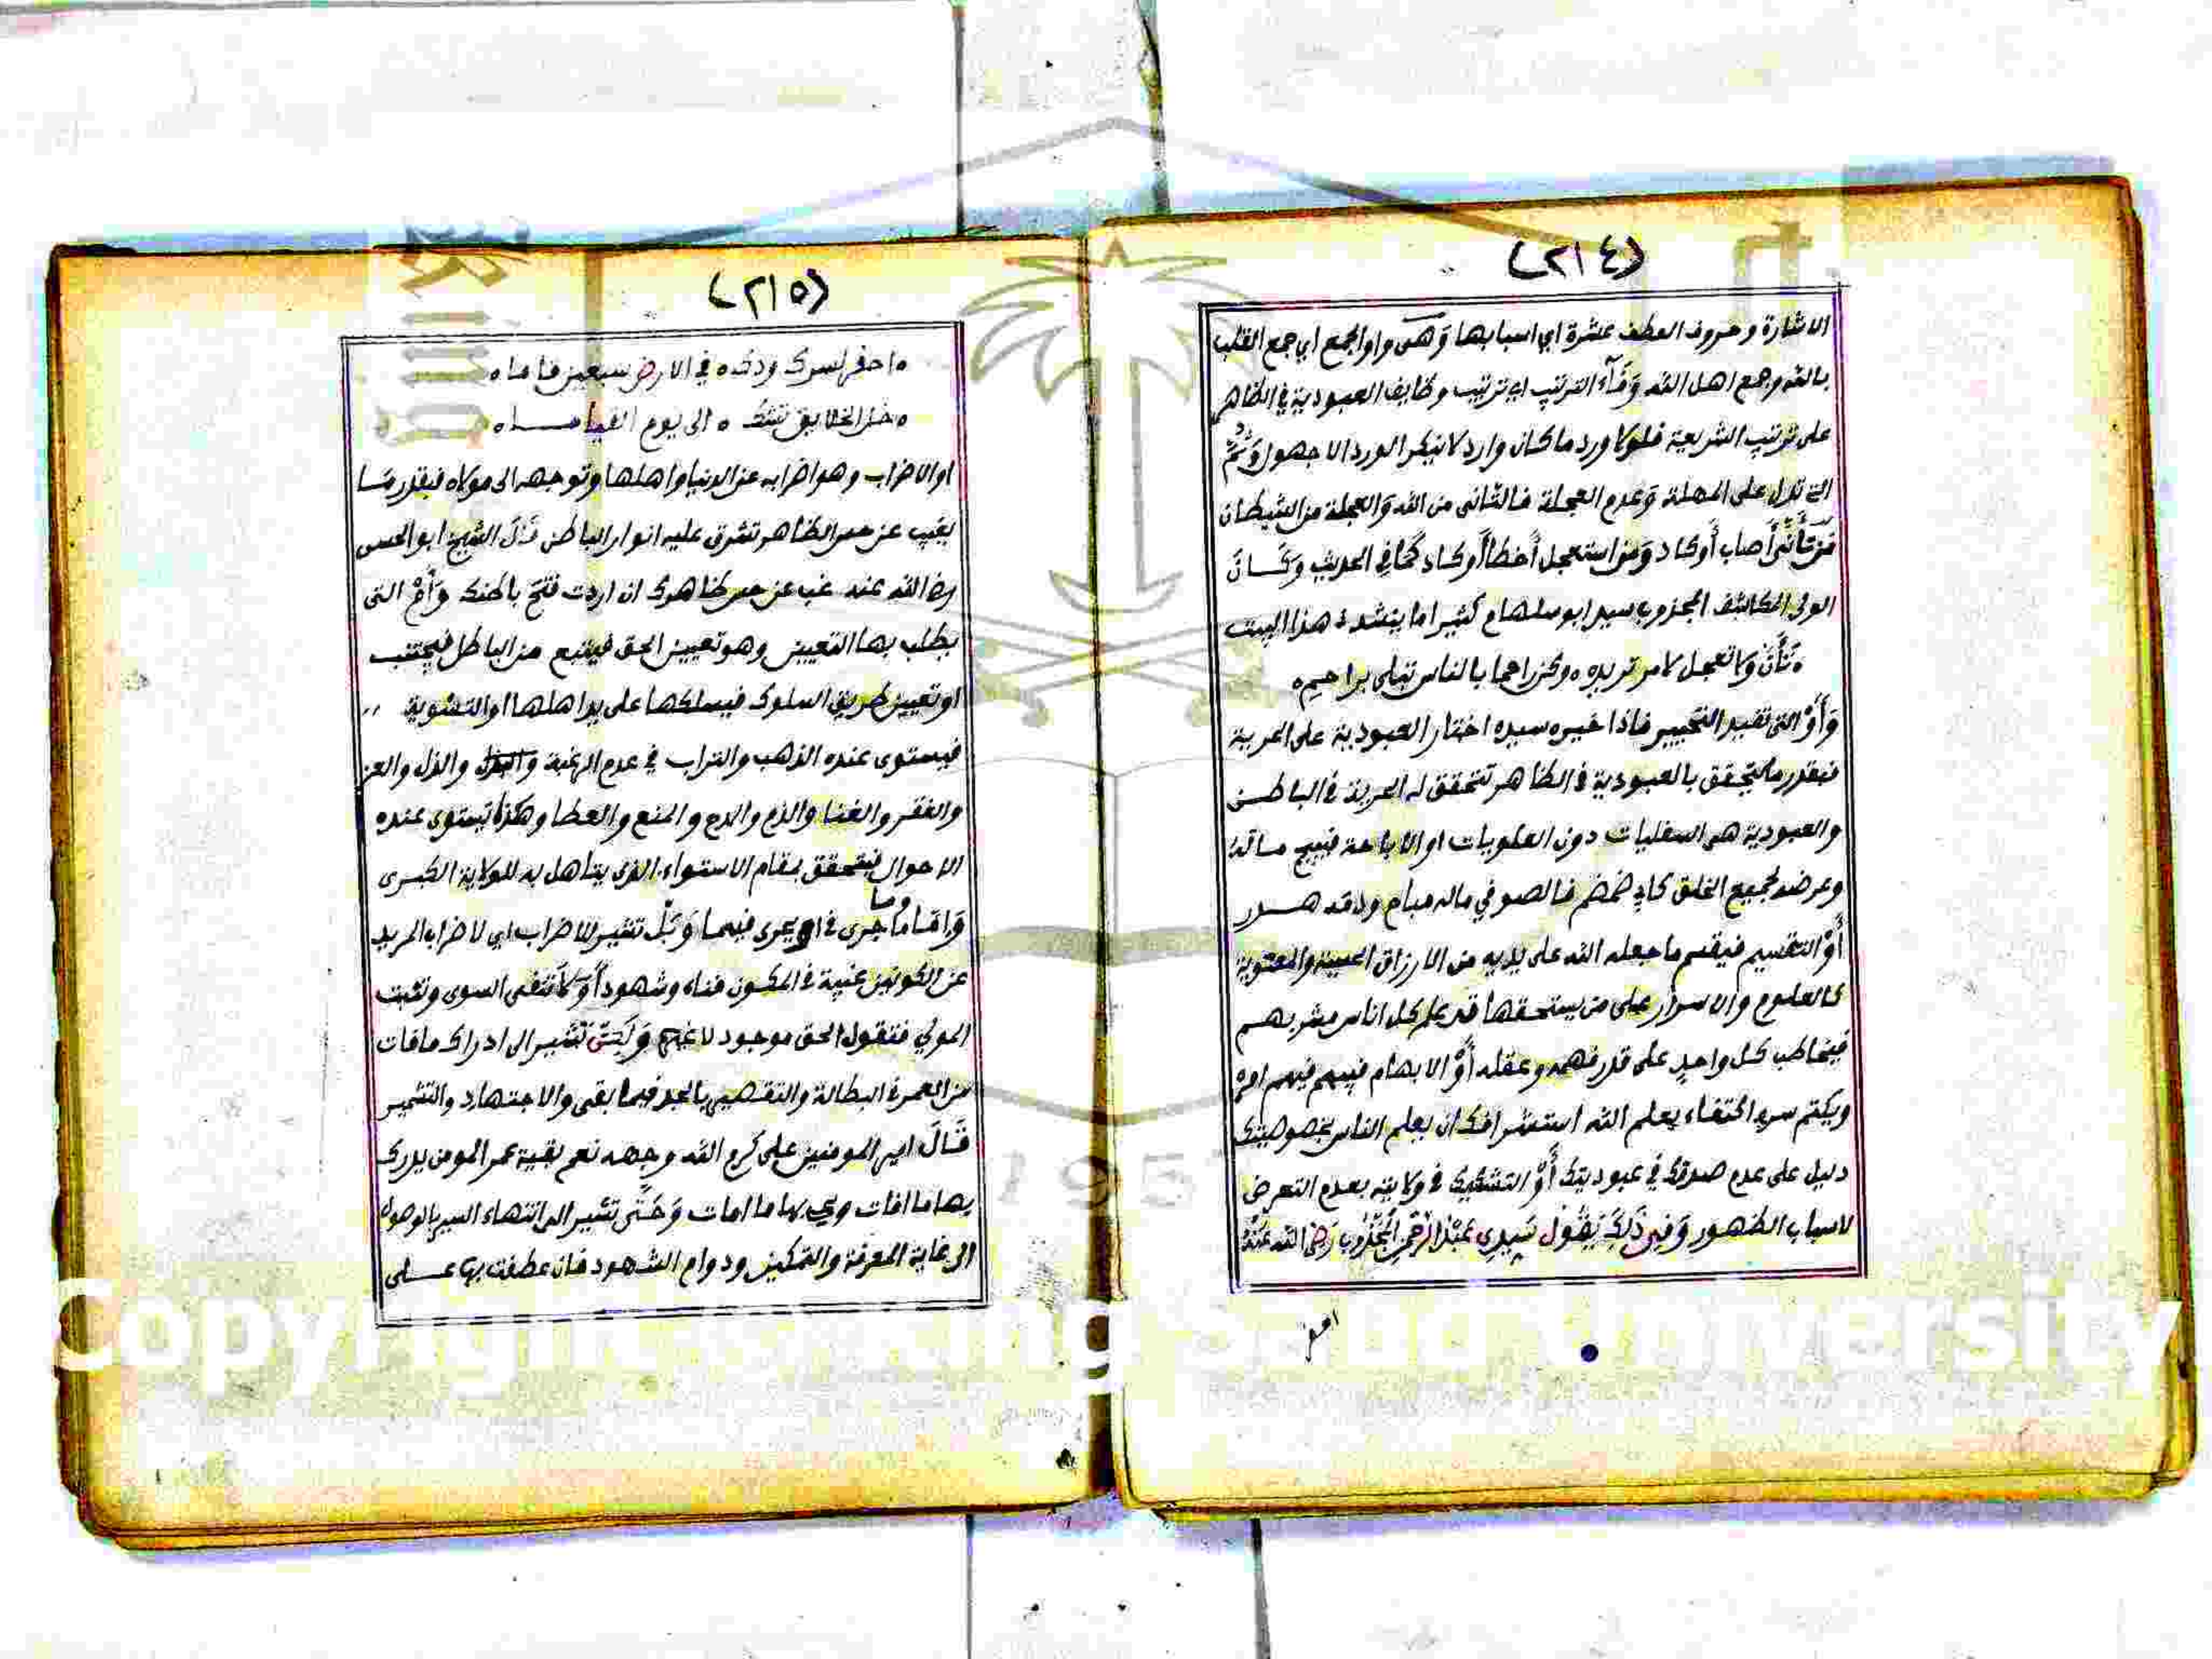 (٢١٤)
الاشارة وحروف العطف عشرة اي اسبابها وَهى واو الجمع اي جمع القلب
بالله وجمع اهل الله وَفَآء الترتيب اي ترتيب وظايف العبودية في الظاهر
على ترتيب الشريعة فلولا ورد ما كان وارد لا ينكر الورد الا جهول وَثُمَّ
التي تدل على المهلة وَعدم العجلة فالتانى من الله وَالعجلة من الشيطان
مَن تَأَنَّى أَصاب أَو كاد وَمن استعجل أَخطأ أَو كاد كَمَا في الحديث وَكَان
الولى المكاشف المجذوب سيد ابو سلهام كثيرا ما ينشد هذا البيت
ه تَأَنَّ وَلا تعجل لامر تريده ه وكن راحما بالناس تبلى براحيم ه
وَأَوْ التى تفيد التخيير فاذا خيره سيده اختار العبودية على الحرية
فبقدر ما يتحقق بالعبودية في الظاهر تتحقق له الحرية في الباطن
والعبودية هي السفليات دون العلويات او الاباحة فيبيح ماله
وعرضه لجميع الخلق كابي ضمضم فالصوفي ماله مباح ودمه هدر
أَوْ التقسيم فيقسم ما جعله الله على يديه من الارزاق الحسية والمعنوية
كالعلوم والاسرار على من يستحقها قد علم كل اناس مشربهم
فيخاطب كل واحدٍ على قدر فهمه وعقله أَوْ الابهام فيبهم فيهم امره
ويكتم سره اكتفاء بعلم الله استشرافك ان يعلم الناس بخصوصيتك
دليل على عدم صدقك في عبوديتك أَوْ التشكيك في ولايته بعدم التعرض
لاسباب الظهور وَفِى ذَلِكَ يَقُول سَيِدِي عَبْدُ الرَّحْمٰنِ الْمَجْذُوب رَضِىَ الله عَنْهُ
احفر
(٢١٥)
ه احفر لسرك ودكه ه في الارض سبعين قاما ه
ه خل الخلايق تشك ه الى يوم القيامــاه
او الاضراب وهو اضرابه عن الدنيا واهلها وتوجهه الى مولاه فبقدر مَا
يغيب عن حس الظاهر تشرق عليه انوار الباطن قَالَ الشيخ ابو الحسن
رض الله عنه غب عن حس ظاهرك ان اردت فتح باطنك وَأَمْ التى
يطلب بها التعيين وهو تعيين الحق فيتبع من الباطل فيجتنب
او تعيين طريق السلوك فيسلكها على يد اهلها او التسوية ,,
فيستوى عنده الذهب والتراب في عدم الرغبة والذل والعز
والفقر والغنا والذم والمدح والمنع والعطا وهكذا تستوى عنده
الاحوال فيتحقق بمقام الاستواء الذي يتاهل به للولاية الكبرى
وَامَّا ما جرى في او يجرى فيهما وَبَلْ تشير للاضراب اي لاضراب المريد
عن الكونين غيبة في المكون فناء وشهوداً وَلَا تنفى السوى وتثبت
المولي فتقول الحق موجود لا غيره وَلَكِنْ تشير الى ادراك ما فات
من العمر في البطالة والتقصير بالجد فيما بقى والاجتهاد والتشمير
قَالَ امير المومنين على كرم الله وجهه نعم بقية عمر المومن يدرك
بها ما افات ويحي بها ما امات وَحَتَّى تشير الى انتهاء السير بالوصول
الى غاية المعرفة والتمكين ودوام الشهود فان عطفت بها عــلى
Copyright © King Saud University
1957